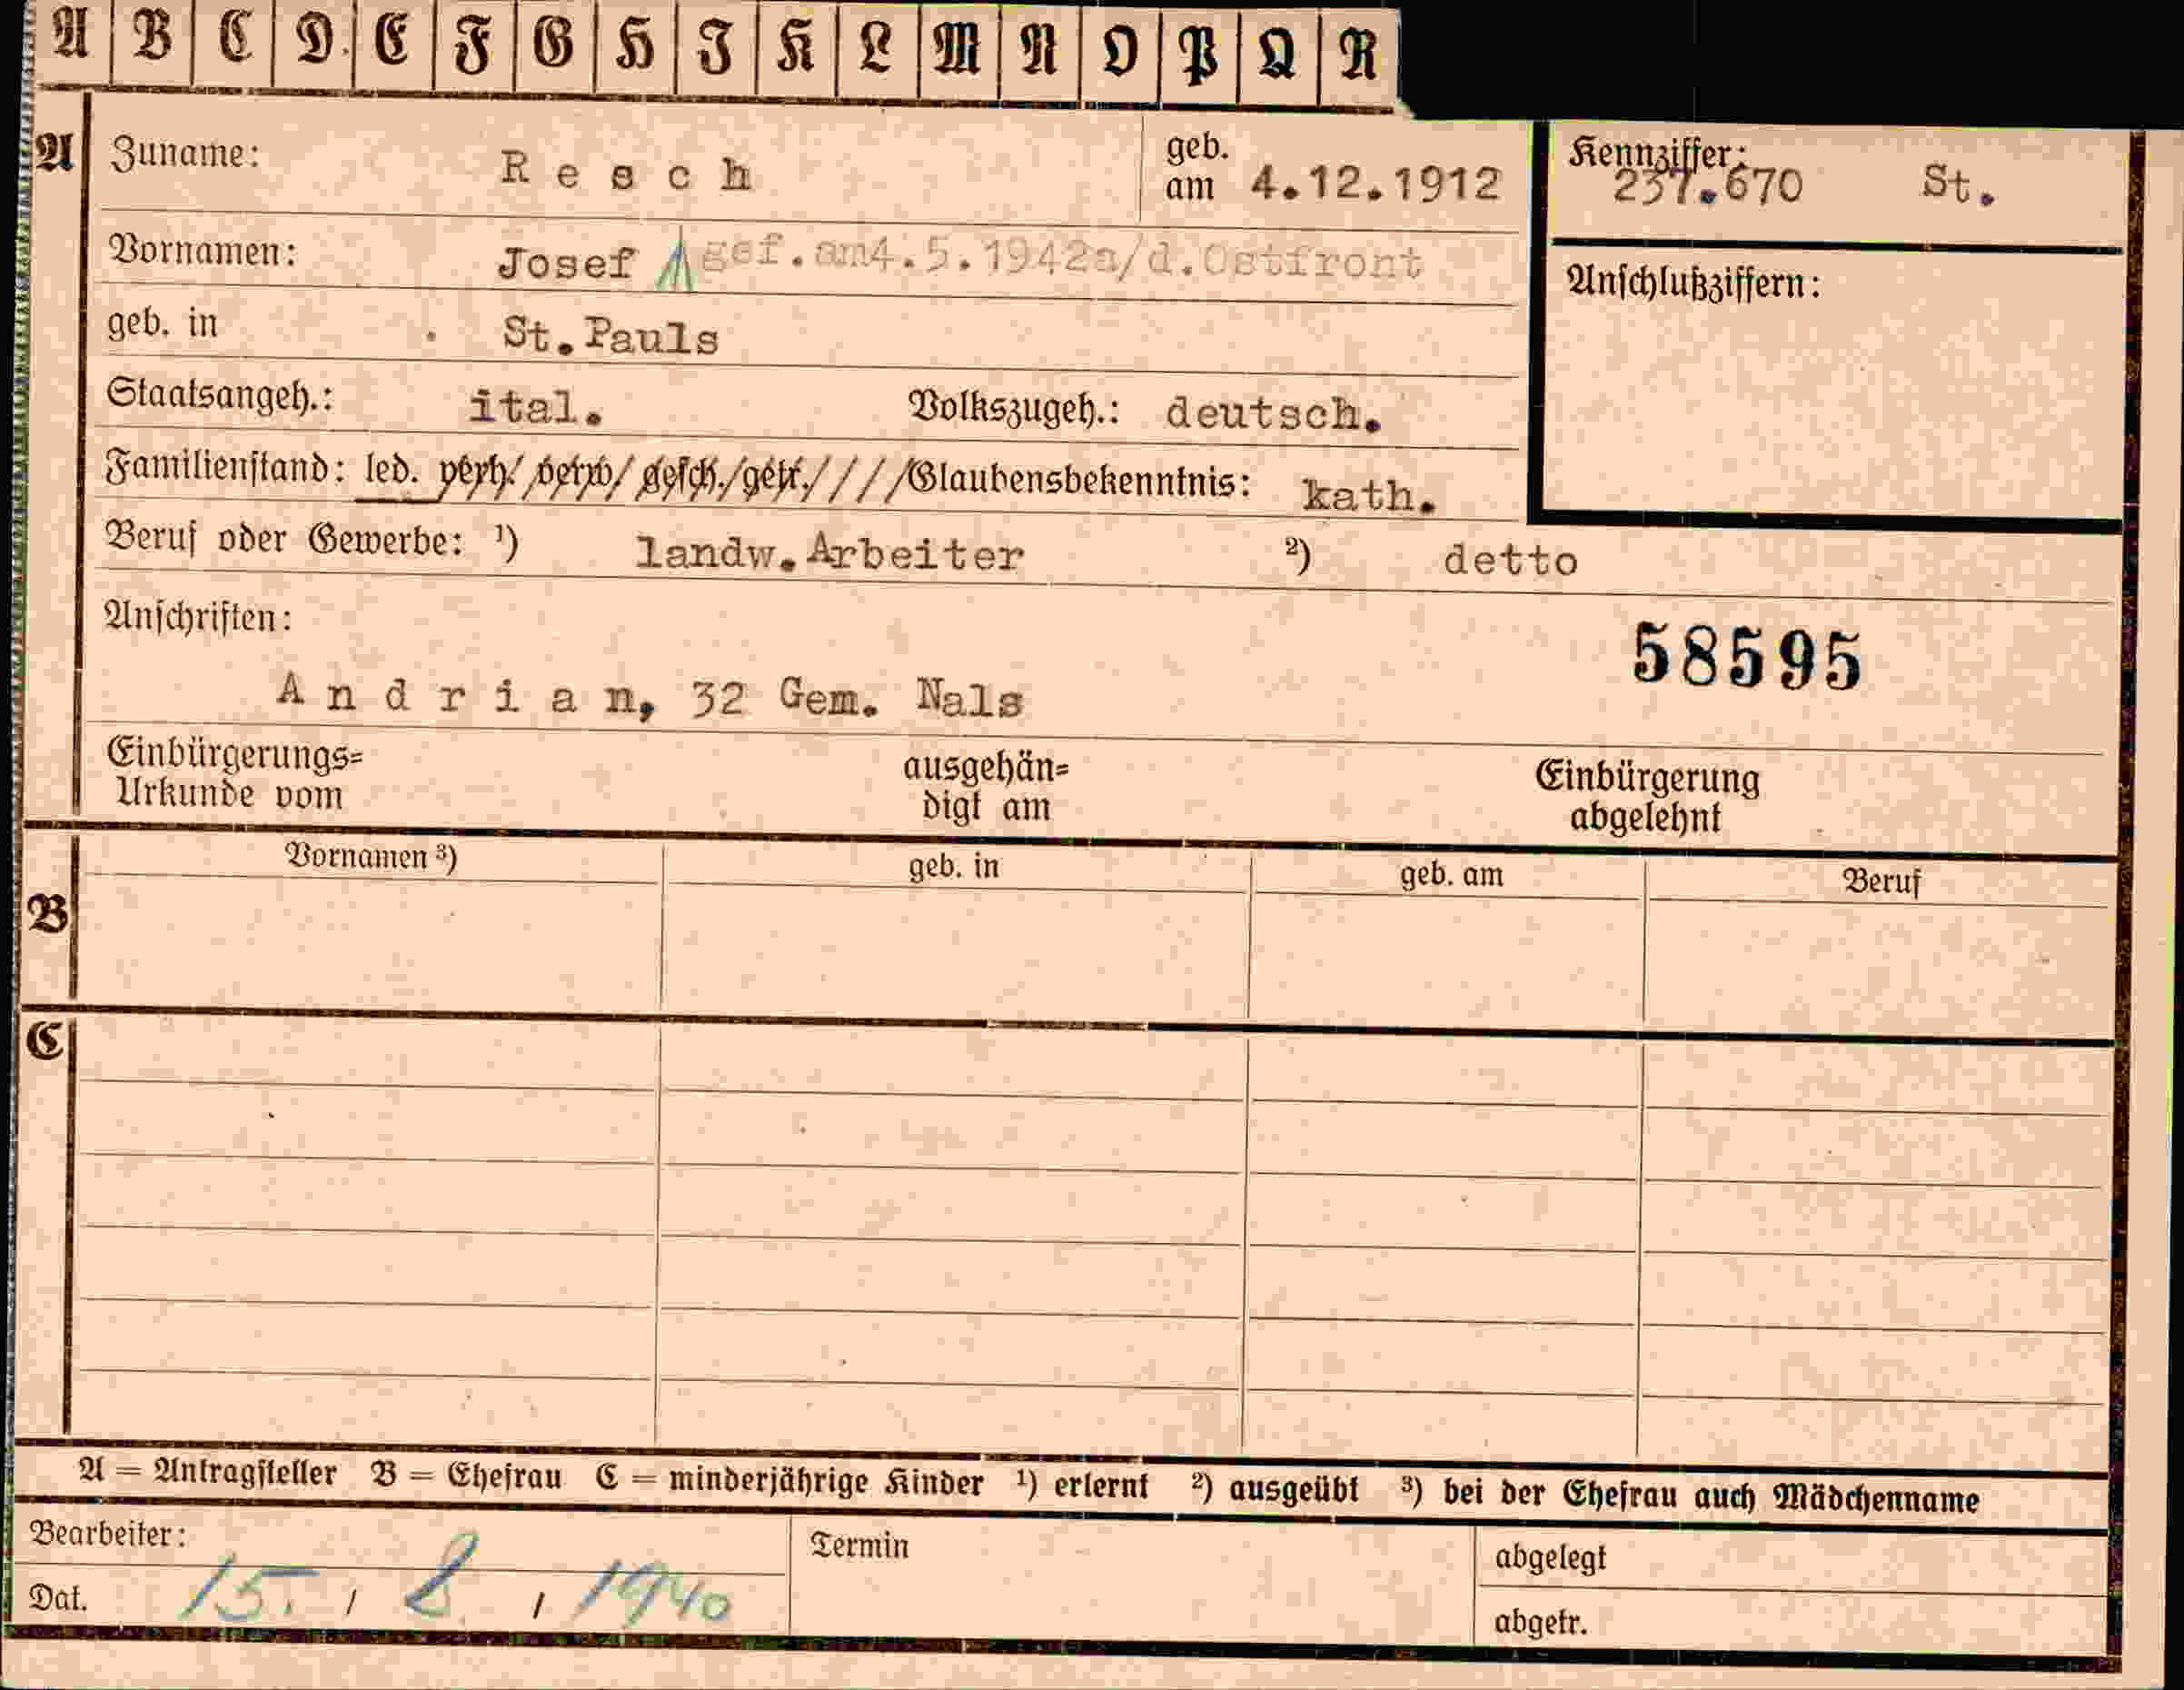 A B C D E F G H I K L M N O P Q R
A Zuname: Resch geb. am 4.12.1912 Kennziffer: 237.670 St.
Vornamen: Josef gef.am4.5.1942a/d.Ostfront Anschlußziffern:
geb. in St.Pauls
Staatsangeh.: ital. Volkszugeh.: deutsch.
Familienstand: led. verh./verw/gesch./getr./ / / /Glaubensbekenntnis: kath.
Beruf oder Gewerbe: ¹) landw.Arbeiter ²) detto
Anschriften: 58595
Andrian, 32 Gem. Nals
Einbürgerungs= ausgehän= Einbürgerung
Urkunde vom digt am abgelehnt
Vornamen ³) geb. in geb. am Beruf
B
C
A = Antragsteller B = Ehefrau C = minderjährige Kinder ¹) erlernt ²) ausgeübt ³) bei der Ehefrau auch Mädchenname
Bearbeiter: Termin abgelegt
Dat. 15. / 8. / 1940 abgetr.